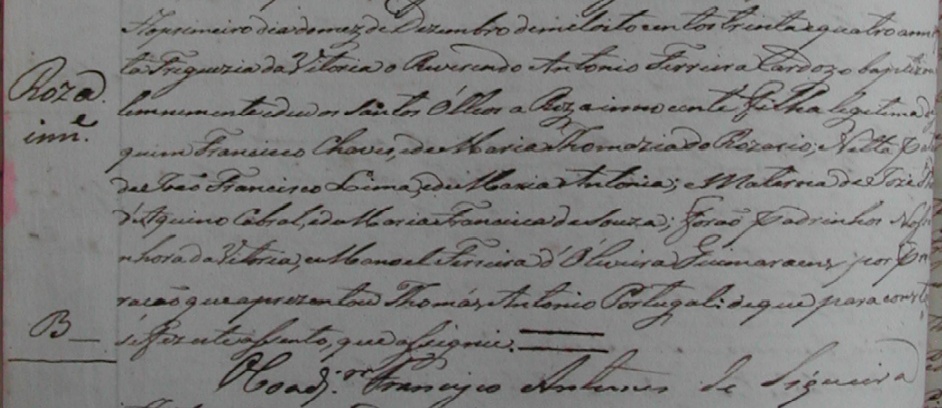 Roza
inn.e
B
Ao primeiro dia do mez de Dezembro de mil oito centos trinta e quatro ann
ta Freguezia da Vitoria o Reverendo Antonio Ferreira Cardozo baptizo
lemnemente e deu os Santos Ólleos a Roza innocente Filha legitima d
quim Francisco Chaves, e de Maria Thomazia do Rozario; Netta Pa
de João Francisco Lima, e de Maria Antonia; e Materna de Jozé Th
d'Aquino Cabral, e de Maria Francisca de Souza; forão Padrinhos Nos
nhora da Vitoria, e Manoel Ferreira d'Oliveira Guimaraens, por P
ração que aprezentou Thomás Antonio Portugal: de que para const
se fez este assento, que assignei.
O Coadj.or Francisco Antunes de Siqueira